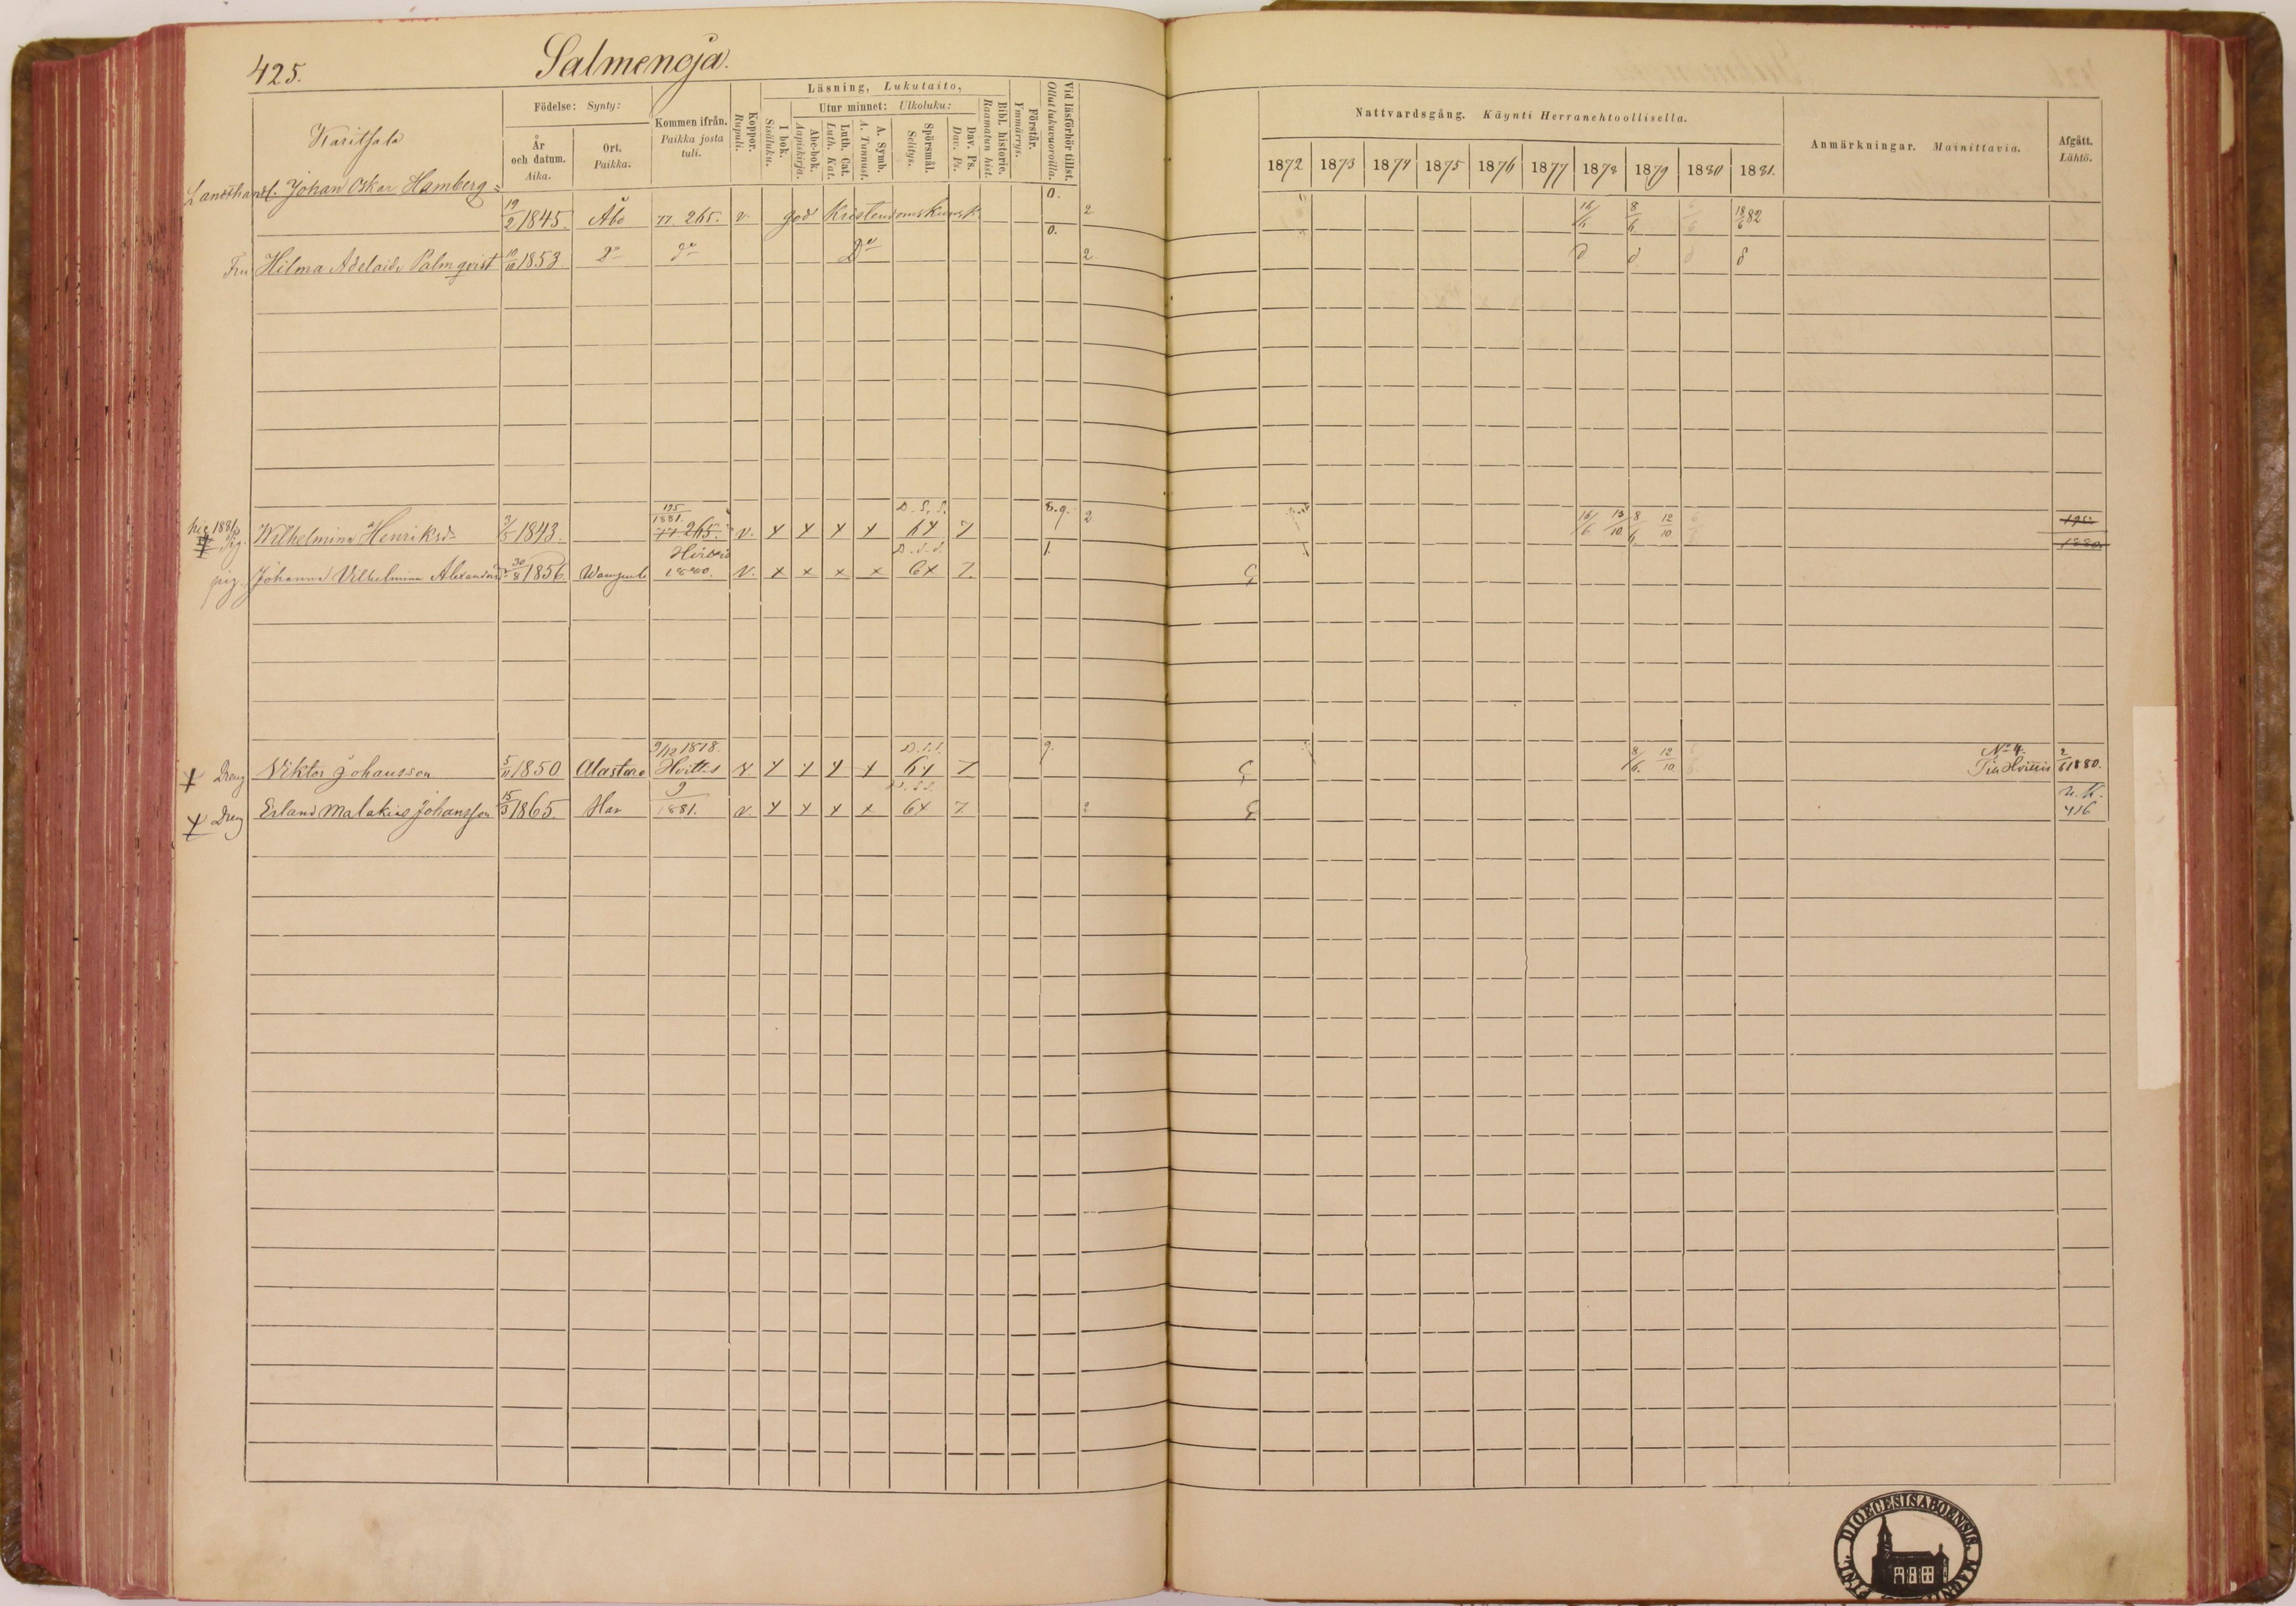 425.
Salmenoja.
Födelse: Synty:
År och datum. Aika.
Ort. Paikka.
Kommen ifrån. Paikka josta tuli.
Koppor. Rupuli.
Läsning, Lukutaito,
I bok. Sisäluku.
Utur minnet: Ulkoluku:
Abc-bok. Aapiskirja.
Luth. Cat. Luth. Kat.
A. Symb. A. Tunnust.
Spörsmål. Selitys.
Dav. Ps. Dav. Ps.
Bibl. historie. Raamatun hist.
Förstår. Ymmärrys.
Vid läsförhör tillst. Ollut lukuvuoroilla.
Nattvardsgång. Käynti Herranehtoollisella.
1872 1873 1874 1875 1876 1877 1878 1879 1880 1881.
Anmärkningar. Mainittavia.
Afgått. Lähtö.
Karitsala
Landthandl. Johan Oskar Hamberg
19/2 1845. Åbo 77. 265. v. god Kristendomskunsk. 0. 2 16/6 8/6 18/6 82
Fru Hilma Adelaide Palmqvist 10/10 1853 Do do Do 0. 2 d d d d
195 1881. D. S. S. 8.9.
pig 1881 Pig. Wilhelmina Henriksd. 3/5 1843. 77 265. v. x x x x 6x 7 2 16/6 13/10 8/6 12/10 195
Hvittis D. S. S. 1. 1880.
pig. Johanna Vilhelmina Alexandersd. 30/8 1856 1880. v. x x x x 6x 7.
9/12 1878. D. S. S. 9. No 4.
Dreng Viktor Johansson 5/11 1850 Alastaro Hvittis v x x x x 6x 7 8/6. 12/10 Till Hvittis 2/6 1880.
9 D. S. S. n. K.
Dreng Erland Malakias Johansson 15/3 1865. Här 1881. v. x x x x 6x 7. 2 416
DIOECESIS ABOENSIS.